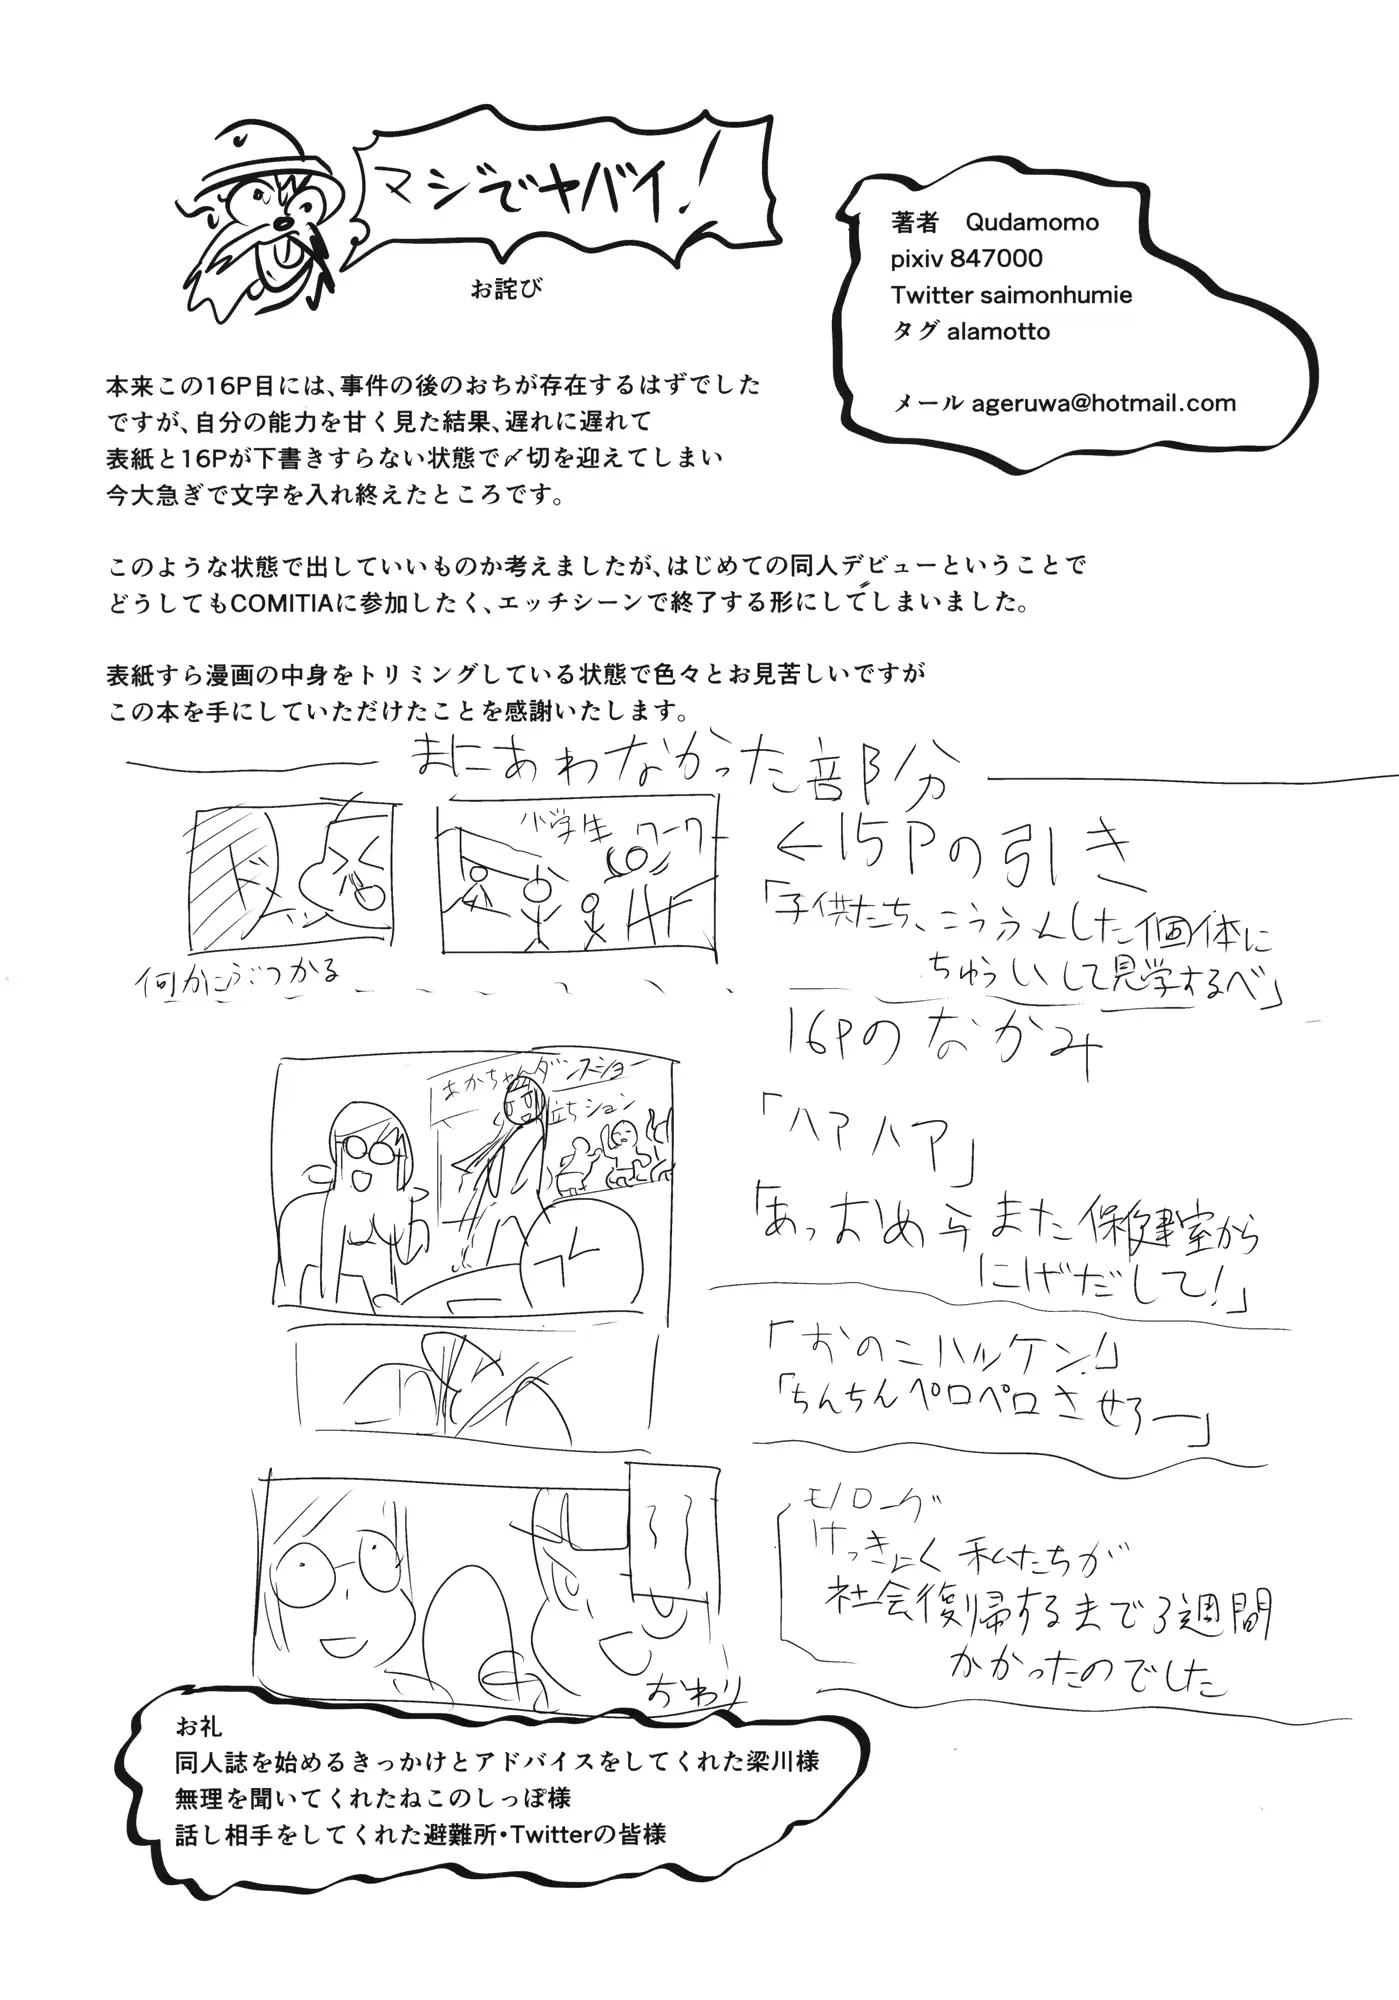 マジでヤバイ!
お詫び
著者 Qudamomo
pixiv 847000
Twitter saimonhumie
タグ alamotto
メール ageruwa@hotmail.com
本来この16P目には、事件の後のおちが存在するはずでした
ですが、自分の能力を甘く見た結果、遅れに遅れて
表紙と16Pが下書きすらない状態で〆切を迎えてしまい
今大急ぎで文字を入れ終えたところです。
このような状態で出していいものか考えましたが、はじめての同人デビューということで
どうしてもCOMITIAに参加したく、エッチシーンで終了する形にしてしまいました。
表紙すら漫画の中身をトリミングしている状態で色々とお見苦しいですが
この本を手にしていただけたことを感謝いたします。
まにあわなかった部分
ドン
小学生 ワーワー
何かにぶつかる
←15Pの引き
「子供たち、こうふんした個体に
ちゅういして見学するべ」
16Pのなかみ
あかちゃんダンスショー
立ちション
「ハアハア」
「あっおめえまた保健室から
にげだして!」
「おのこハルケン!」
「ちんちんペロペロさせろー」
モノローグ
けっきょく私たちが
社会復帰するまで3週間
かかったのでした
おわり
お礼
同人誌を始めるきっかけとアドバイスをしてくれた梁川様
無理を聞いてくれたねこのしっぽ様
話し相手をしてくれた避難所・Twitterの皆様